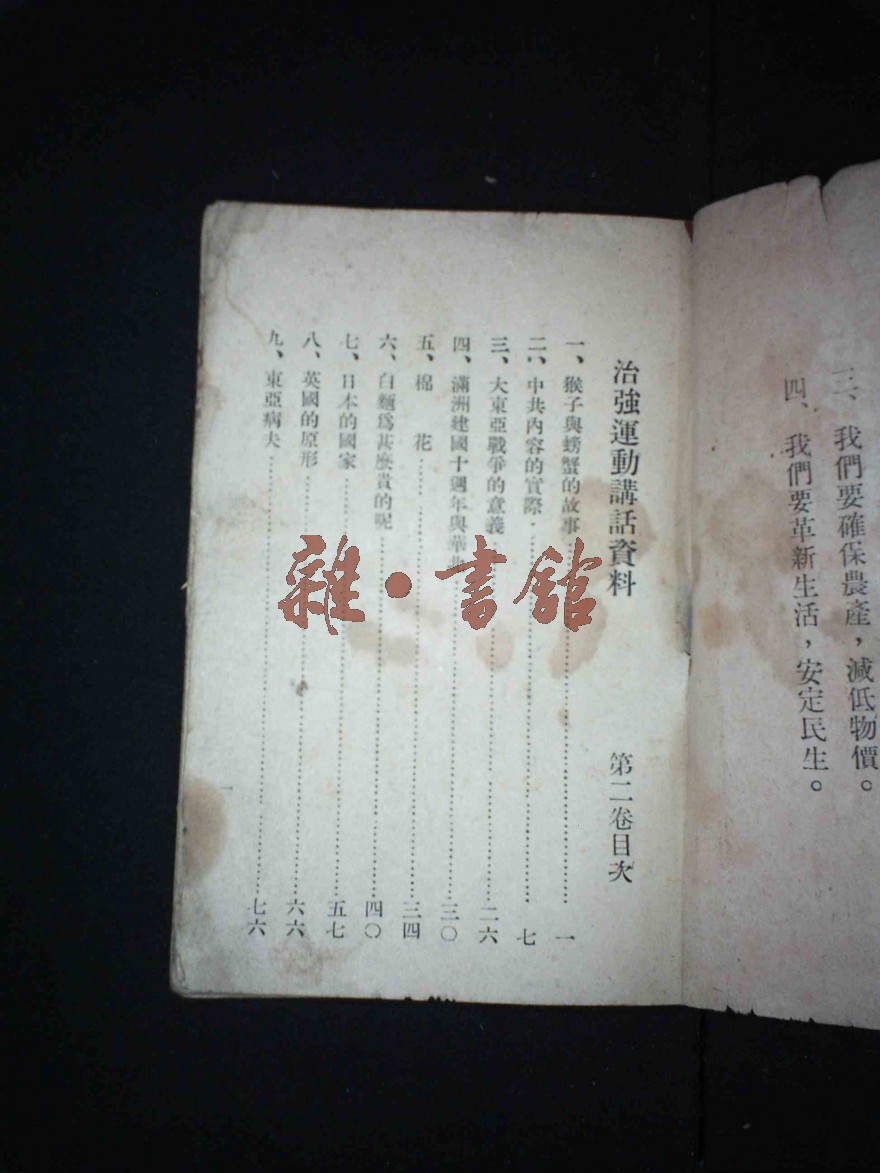 三、我們要確保農產，減低物價。
四、我們要革新生活，安定民生。
治強運動講話資料 第二卷目次
一、猴子與螃蟹的故事 一
二、中共內容的實際 七
三、大東亞戰爭的意義 二六
四、滿洲建國十週年與華北 三〇
五、棉花 三四
六、白麵爲甚麼貴的呢 四〇
七、日本的國家 五七
八、英國的原形 六六
九、東亞病夫 七六
雜·書館